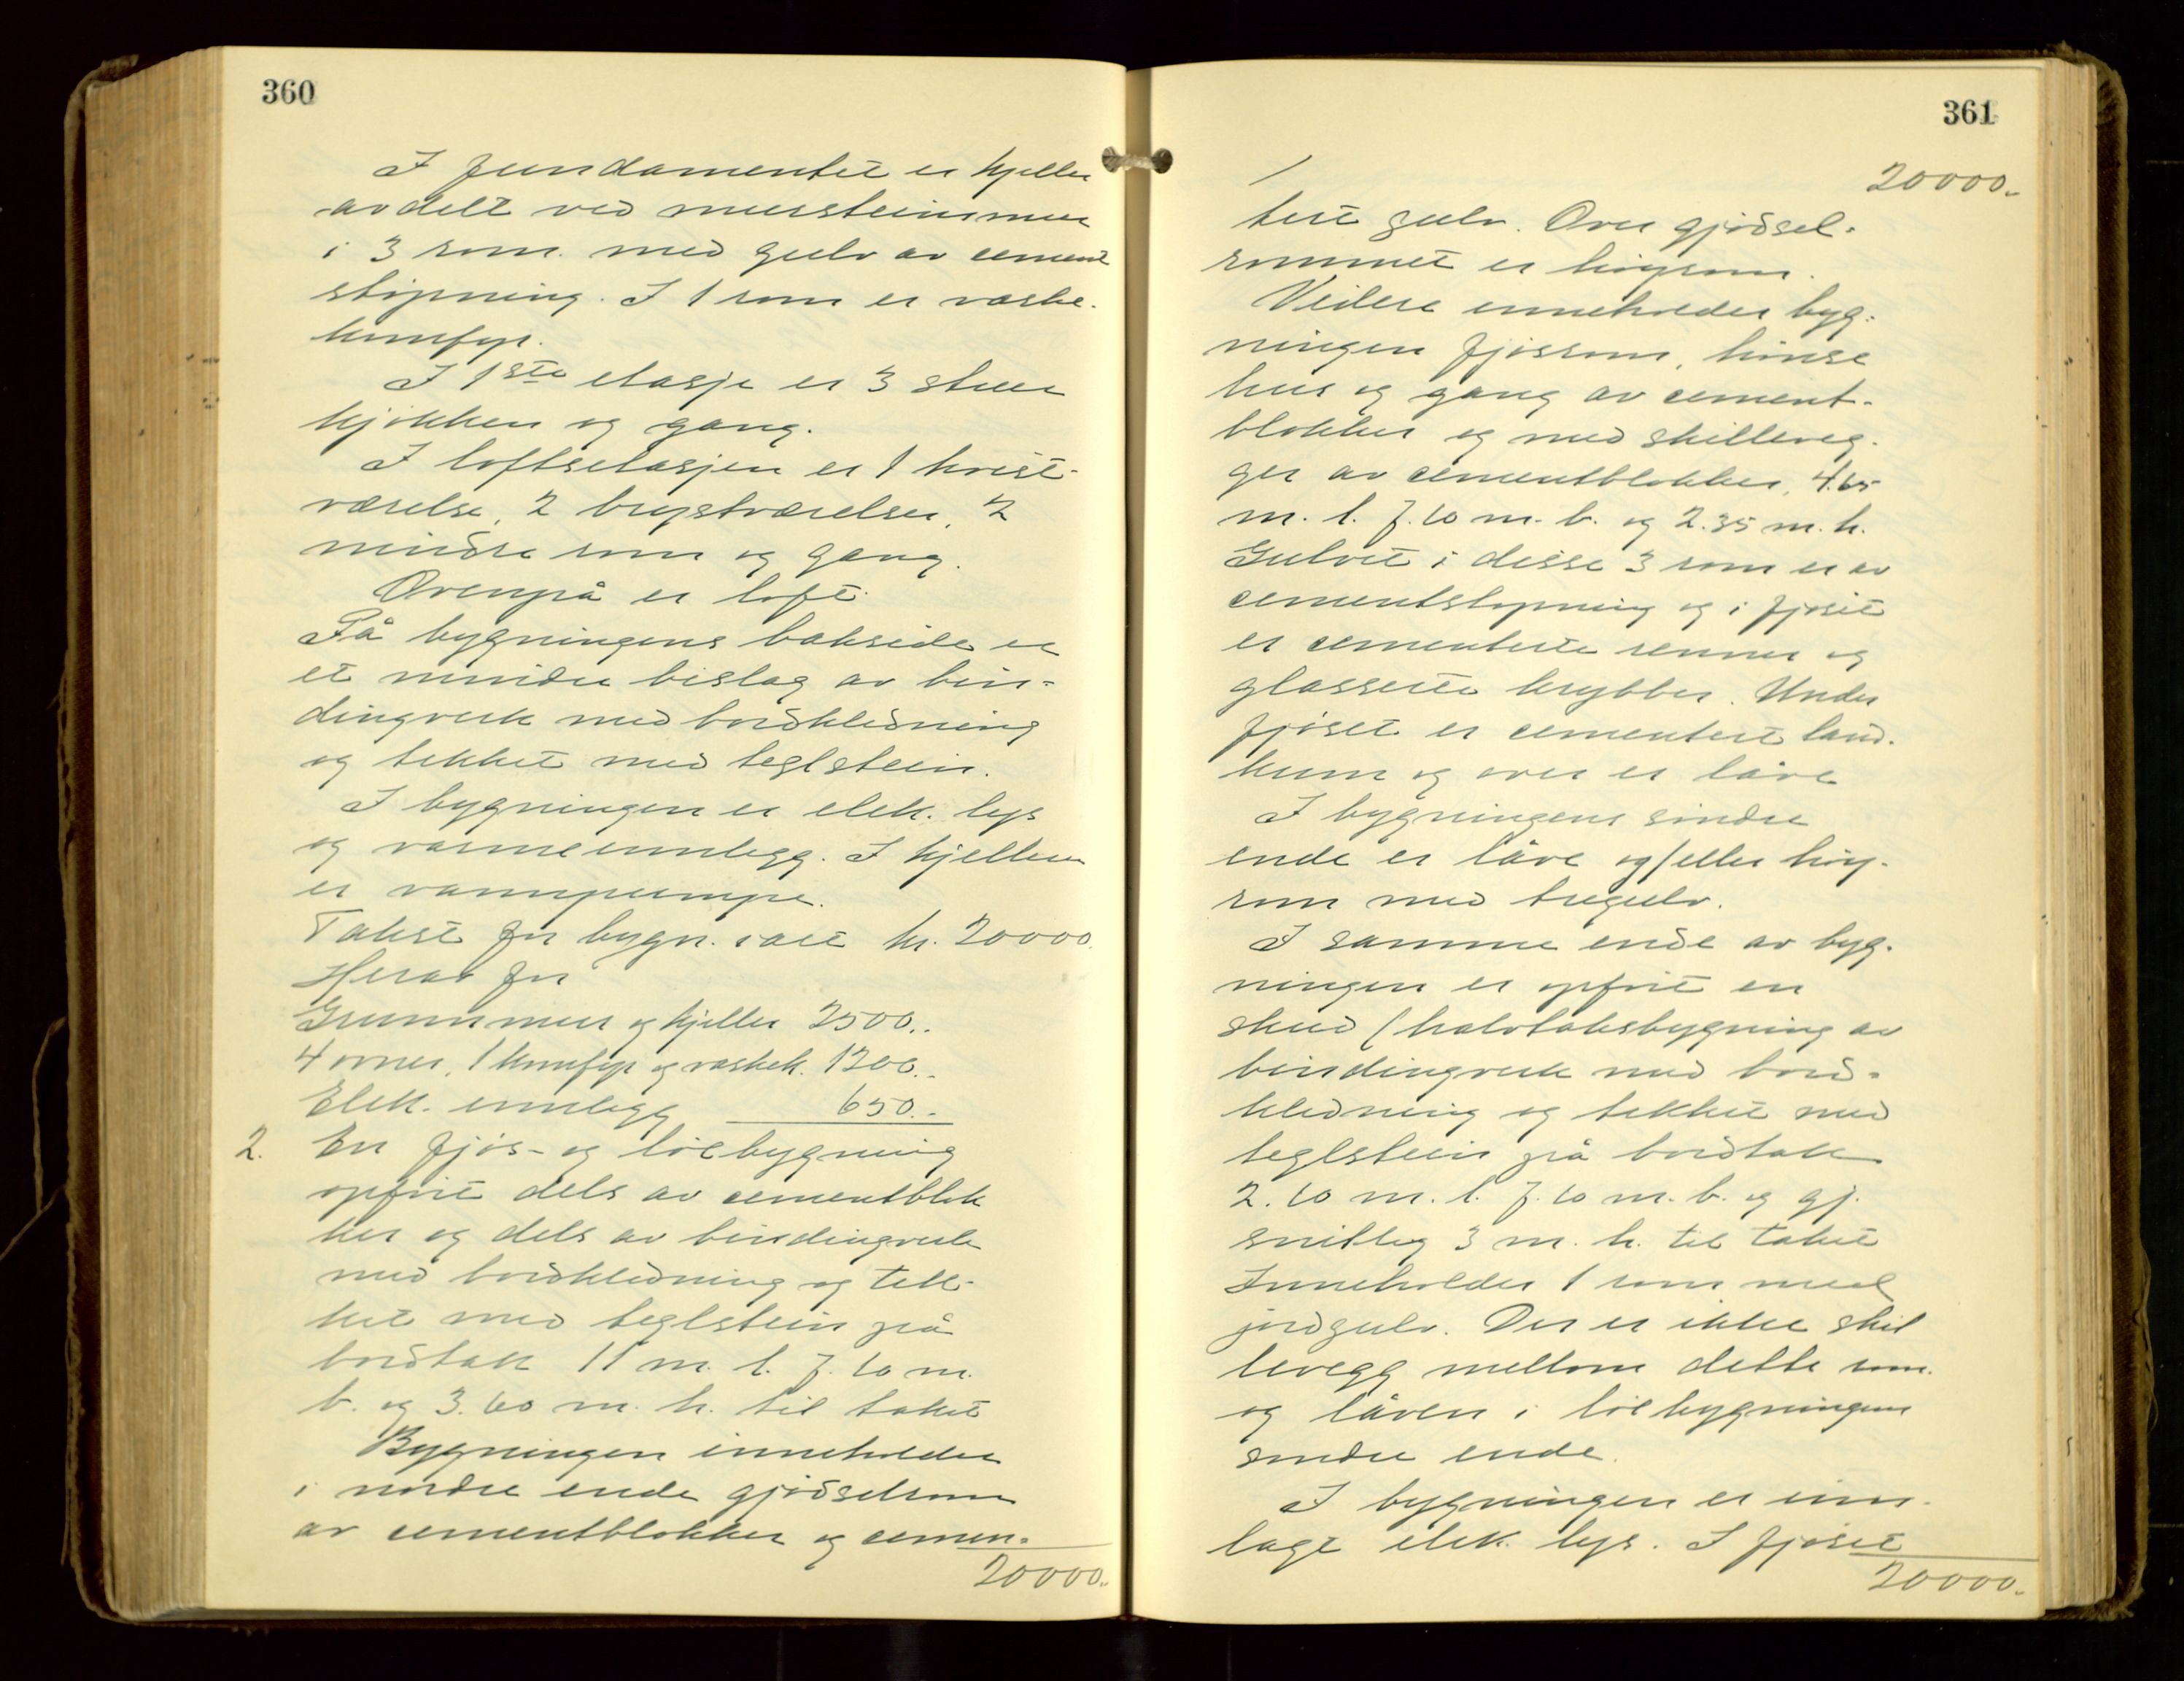 360
I fundamentet er kjeller
avdelt ved mursteinsmur
i 3 rom med gulv av cement
støpning. I 1 rom er vaske-
komfyr.
I 1ste etasje er 3 stuer
kjøkken og gang.
I loftsetasjen er 1 kvist-
værelse, 2 brystværelser, 2
mindre rom og gang.
Ovenpå er loft.
På bygningens bakside er
et mindre bislag av bin-
dingverk med bordkledning
og tekket med teglstein.
I bygningen er elek. lys
og varmeinnlegg. I kjelleren
er vannpumpe.
Takst for bygn. i alt kr. 20000.
Herav for
Grunnmur og kjeller 2500.-
4 ovner, 1 komfyr og vaskek. 1200.-
Elek. innlegg 650.-
2. En fjøs- og løebygning
opført dels av cementblok
ker og dels av bindingverk
med bordkledning og tek-
ket med teglstein på
bordtak 11 m. l. 7.60 m.
b. og 3.60 m. h. til taket
Bygningen inneholder
i nordre ende gjødselrom
av cementblokker og cemen-
20000.-
361
20000.-
tert gulv. Over gjødsel-
rommet er høyrom.
Videre inneholder byg-
ningen fjøsrom, hønse
hus og gang av cement-
blokker og med skilleveg-
ger av cementblokker, 4.65
m. l. 7.60 m. b. og 2.35 m. h.
Gulvet i disse 3 rom er av
cementstøpning og i fjøset
er cementerte renner og
glasserte krybber. Under
fjøset er cementert land-
kum og over er låve
I bygningens søndre
ende er låve og/eller høy-
rom med tregulv.
I samme ende av byg-
ningen er opført en
skud (halvtaksbygning av
bindingverk med bord-
kledning og tekket med
teglstein på bordtak
2.60 m. l. 7.60 m. b. og gj.
snitlig 3 m. h. til taket
Inneholder 1 rom med
jordgulv. Der er ikke skil
levegg mellom dette rom
og låven i løebygningens
søndre ende.
I bygningen er inn-
lagt elek. lys. I fjøset
20000.-